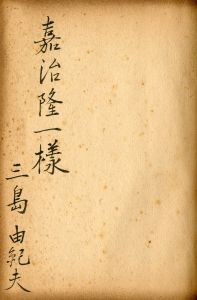 嘉治隆一樣
三島由紀夫